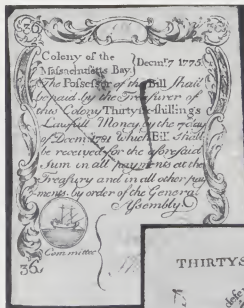 Colony of the
Massachusetts Bay. } Decem.r 7 1775
The Possessor of this Bill shall
be paid by the Treasurer of
this Colony Thirty Six shillings
Lawfull Money by the 7 day
of Decem.r 1781 Which Bill shall
be received for the aforesaid
Sum in all payments at the
Treasury and in all other pay
ments by order of the General
Assembly
Committee
36
THIRTYS